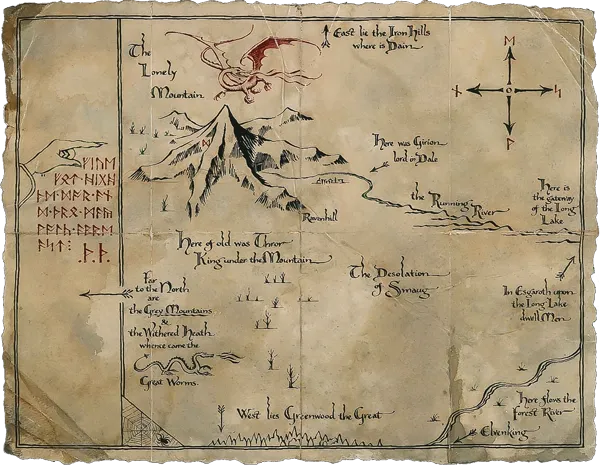 East lie the Iron Hills
where is Dain
The
Lonely
Mountain
ᛖ
ᚾ
ᛋ
ᚹ
ᛞ
Here was Girion
lord in Dale
the Running
River
Here is
the gateway
of the Long
Lake
Ravenhill
Here of old was Thror
King under the Mountain
The Desolation
of Smaug
Far
to the North
are
the Grey Mountains
&
the Withered Heath
whence came the
Great Worms.
In Esgaroth upon
the Long Lake
dwell Men
Here flows the
Forest River
Elvenking
West lies Greenwood the Great